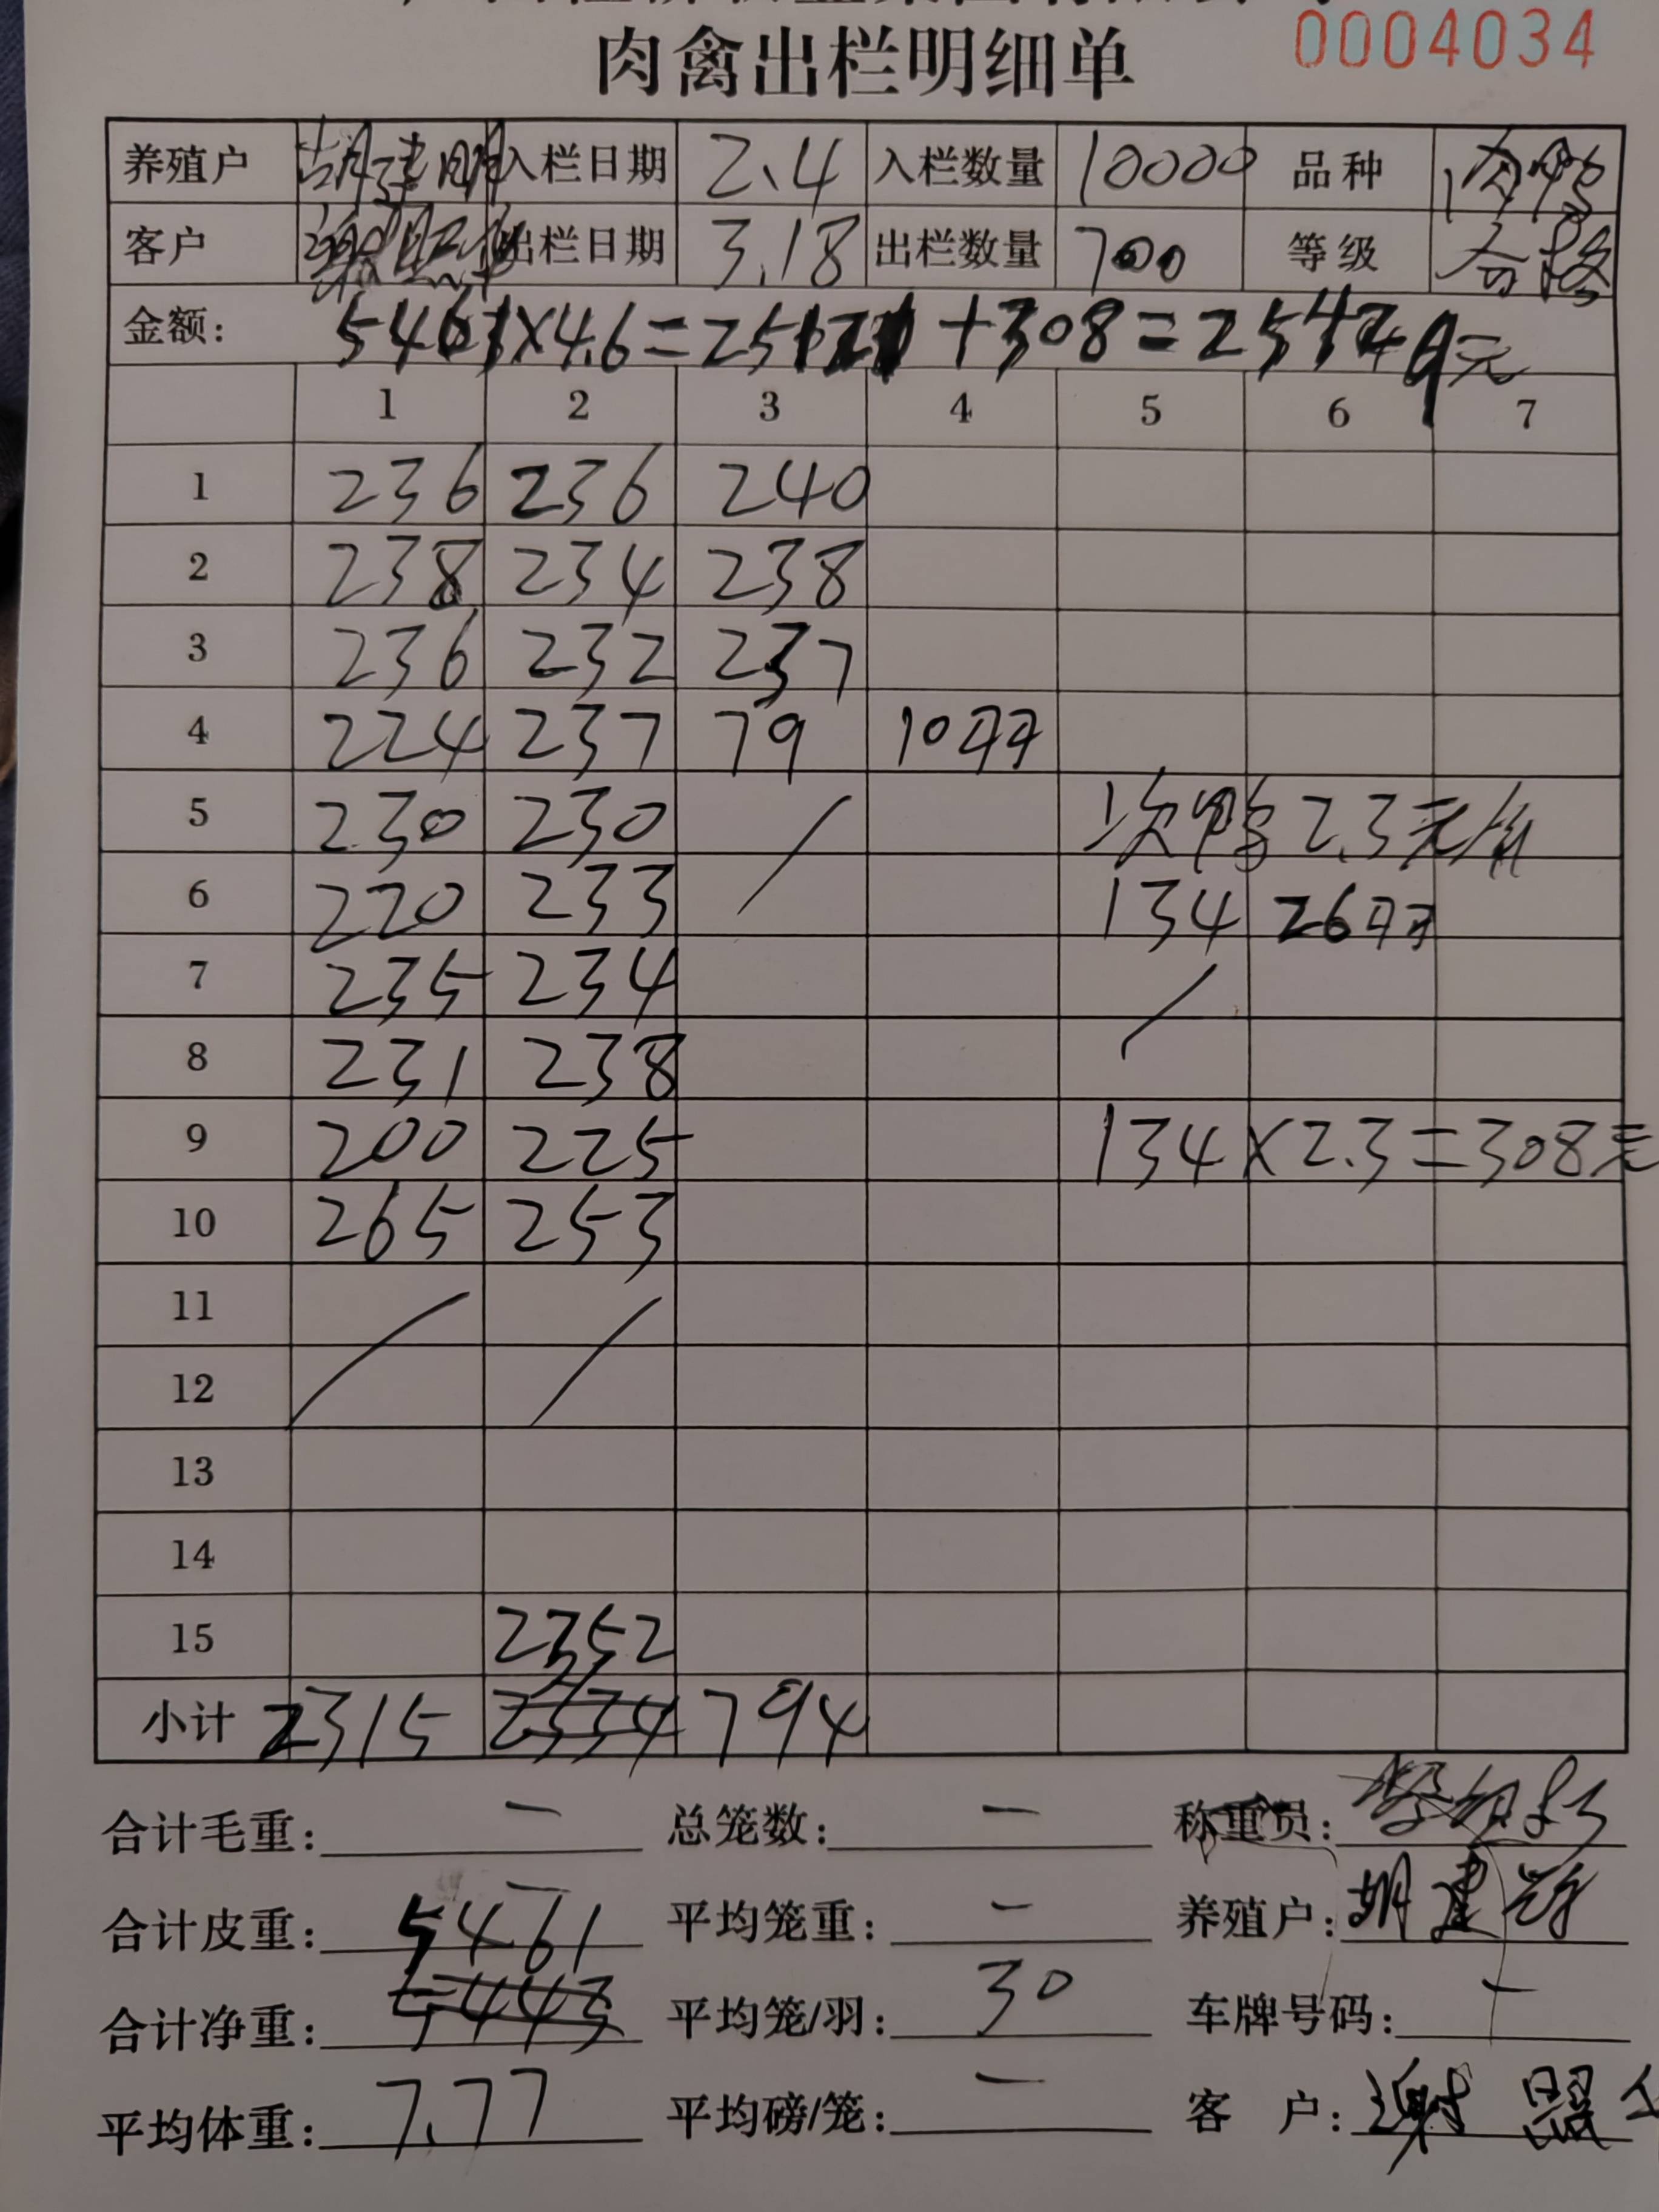 肉禽出栏明细单 0004034
养殖户 胡建明 入栏日期 2.4 入栏数量 10000 品种 肉鸭
客户 谢 出栏日期 3.18 出栏数量 700 等级 合格
金额: 5461×4.6=25121+308=25429元
1 2 3 4 5 6 7
1 236 236 240
2 238 234 238
3 236 232 237
4 224 237 79 10羽
5 230 230 次鸭 2.3元/斤
6 220 233 134 26羽
7 235 234
8 231 238
9 200 225 134×2.3=308元
10 265 253
11
12
13
14
15 2352
小计 2315 2334 794
合计毛重: 一 总笼数: 一 称重员:
合计皮重: 一 平均笼重: 一 养殖户: 胡建
5461
合计净重: 5443 平均笼/羽: 30 车牌号码: 一
平均体重: 7.77 平均磅/笼: 一 客户: 谢